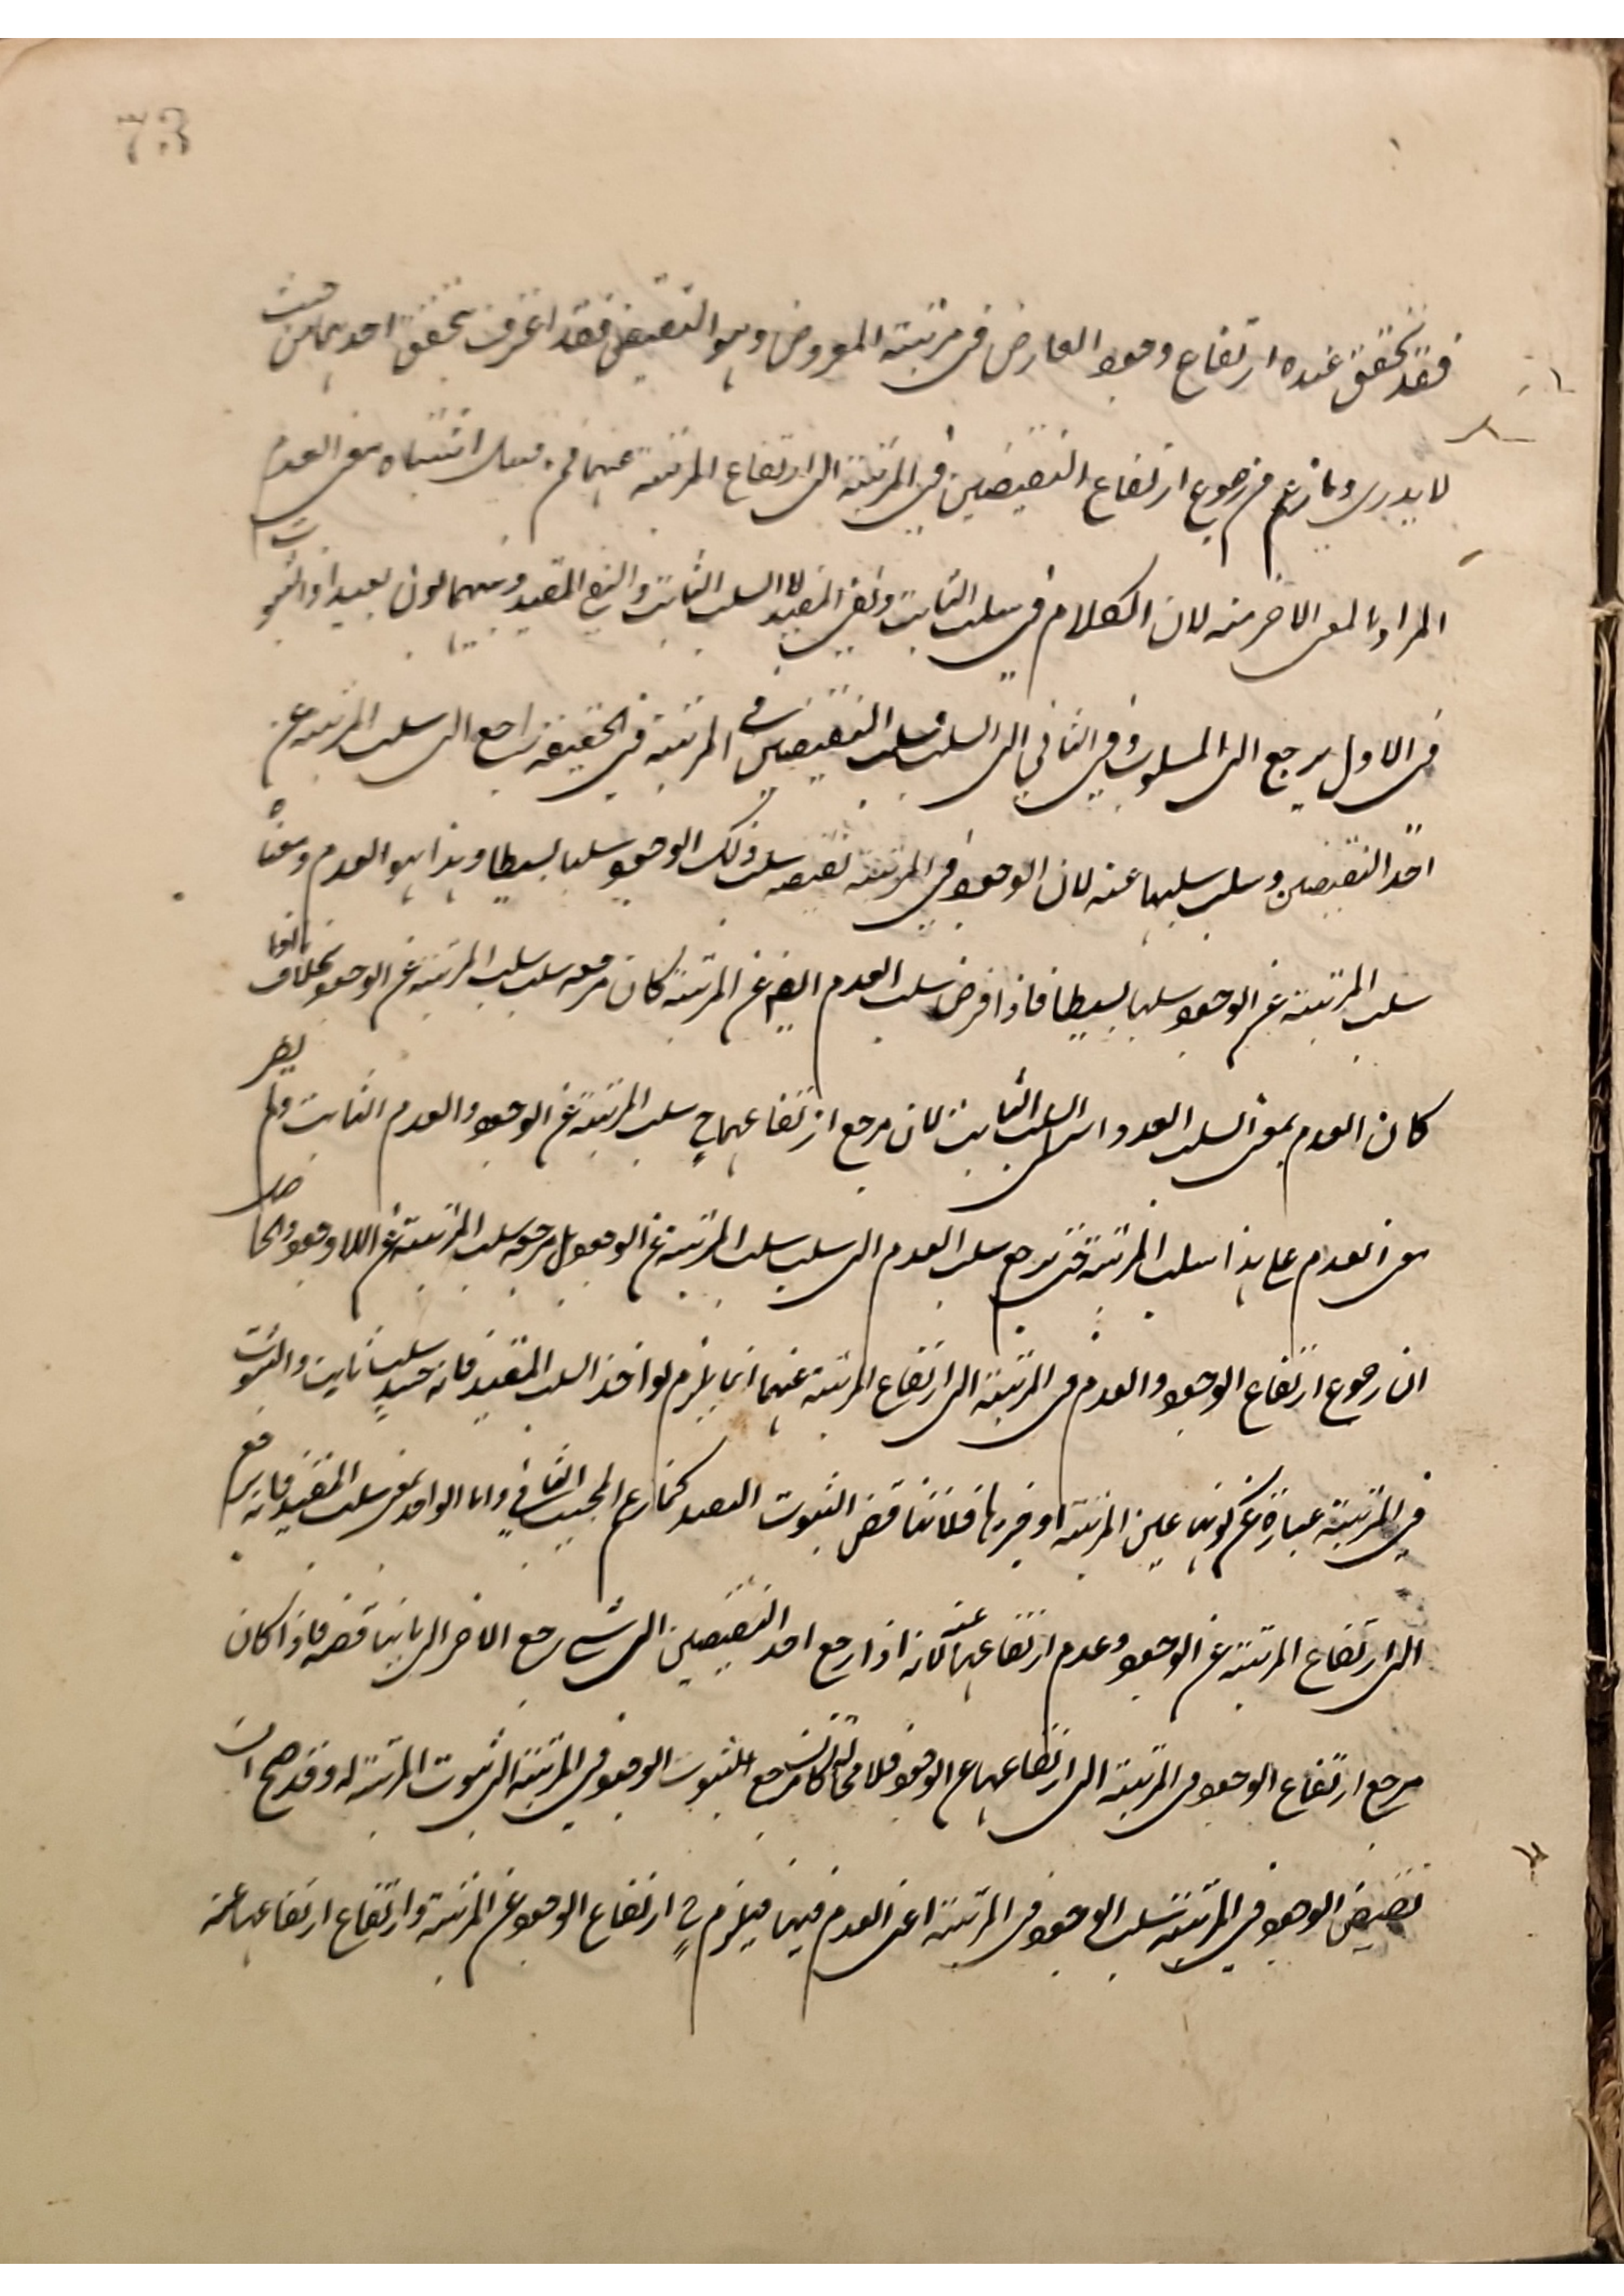 73
فقد تحقق عنده ارتفاع وجود العارض فى مرتبته المعروض وهو النقيض فقد اعترف بتحقق احدهما من حيث
لا يدرى وما زعم من رجوع ارتفاع النقيضين فى المرتبة الى ارتفاع المرتبة عنهما فمن قبيل اشتباه معنى العدم
المراد بالمعنى الاخر منه لان الكلام فى سلب الثابت ونفى المقيد لا السلب الثابت والنفى المقيد وبينهما بون بعيد اذ الثبوت
فى الاول يرجع الى المسلوب وفى الثانى الى السلب فسلب النقيضين فى المرتبة فى الحقيقة راجع الى سلب المرتبة عن
احد النقيضين وسلب سلبها عنه لان الوجود فى المرتبة نقيضه سلب ذلك الوجود سلبا بسيطا وهذا هو العدم ومعناه
سلب المرتبة عن الوجود سلبا بسيطا فاذا فرض سلب العدم ايضا عن المرتبة كان مرجعه سلب سلب المرتبة عن الوجود بخلاف ما اذا
كان العدم بمعنى السلب العدولى السلب الثابت لان مرجع ارتفاعهما ح سلب المرتبة عن الوجود والعدم الثابت ولم يصر
معنى العدم على هذا سلب المرتبة حتى يرجع سلب العدم الى سلب سلب المرتبة عن الوجود بل مرجعه سلب المرتبة عن اللاوجود والحاصل
ان رجوع ارتفاع الوجود والعدم فى المرتبة الى ارتفاع المرتبة عنهما انما يلزم لو اخذ السلب المقيد فانه حينئذ سلب ثابت والثبوت
فى المرتبة عبارة عن كونها عين المرتبة او جزءها فلا تناقض الثبوت المقيد كما زعم المجيب الثانى واما الواحد بمعنى سلب المقيد فانه يرجع
الى ارتفاع المرتبة عن الوجود وعدم ارتفاعها عنه لانه اذا رجع احد النقيضين الى شئ رجع الاخر الى ما يناقضه فاذا كان
مرجع ارتفاع الوجود فى المرتبة الى ارتفاعها عن الوجود فلا محالة كان مرجع الثبوت الوجود فى المرتبة الى ثبوت المرتبة له وقد صح ان
نقيض الوجود فى المرتبة سلب الوجود فى المرتبة اعنى العدم فيها فيلزم ح ارتفاع الوجود عن المرتبة وارتفاع ارتفاعها عنه